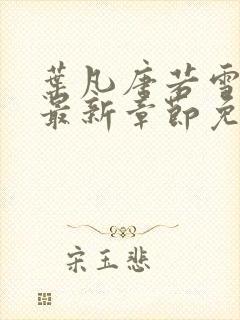 葉凡唐若雪
最新章節免
宋玉悲